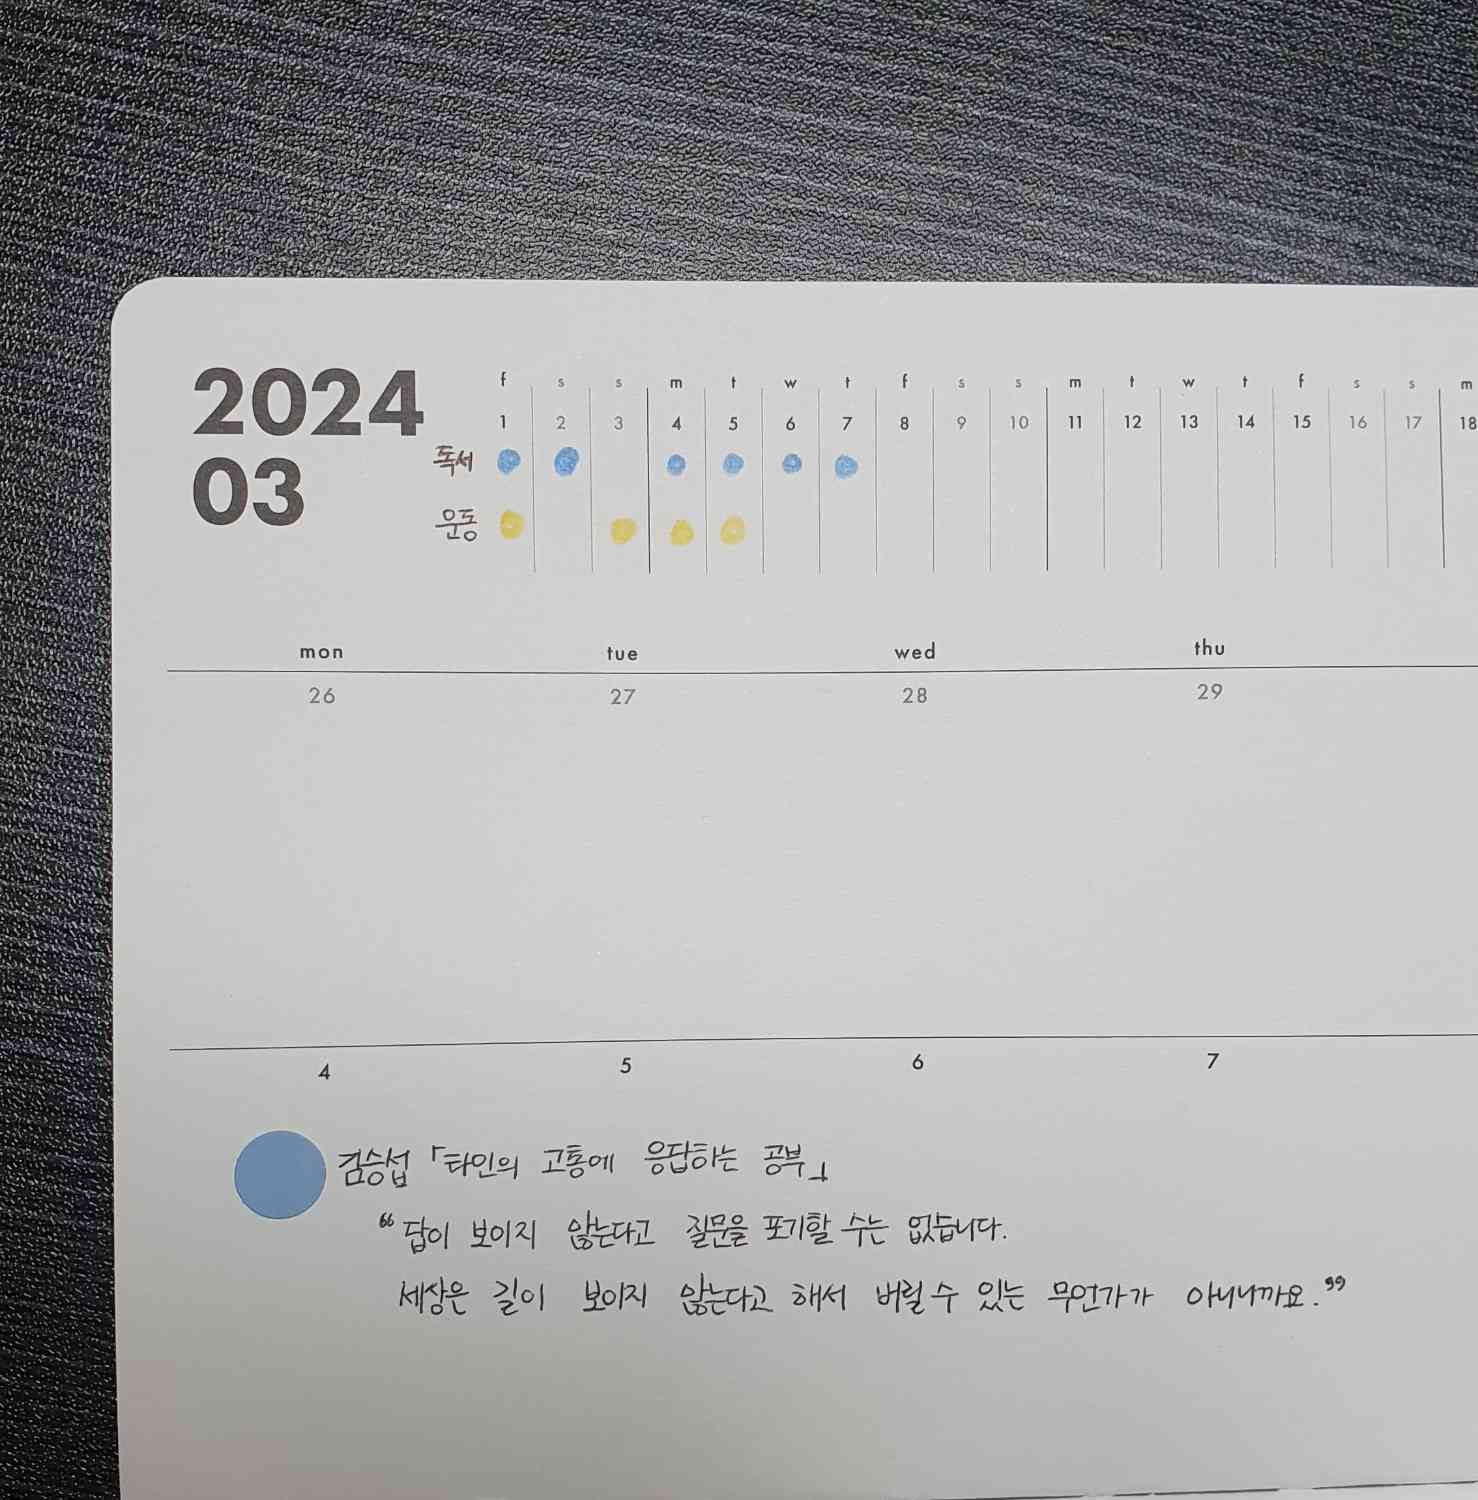 2024
03
f s s m t w t f s s m t w t f s s m
1 2 3 4 5 6 7 8 9 10 11 12 13 14 15 16 17 18
독서
운동
mon tue wed thu
26 27 28 29
4 5 6 7
김승섭 「타인의 고통에 응답하는 공부」
“답이 보이지 않는다고 질문을 포기할 수는 없습니다.
세상은 길이 보이지 않는다고 해서 버릴 수 있는 무언가가 아니니까요.”